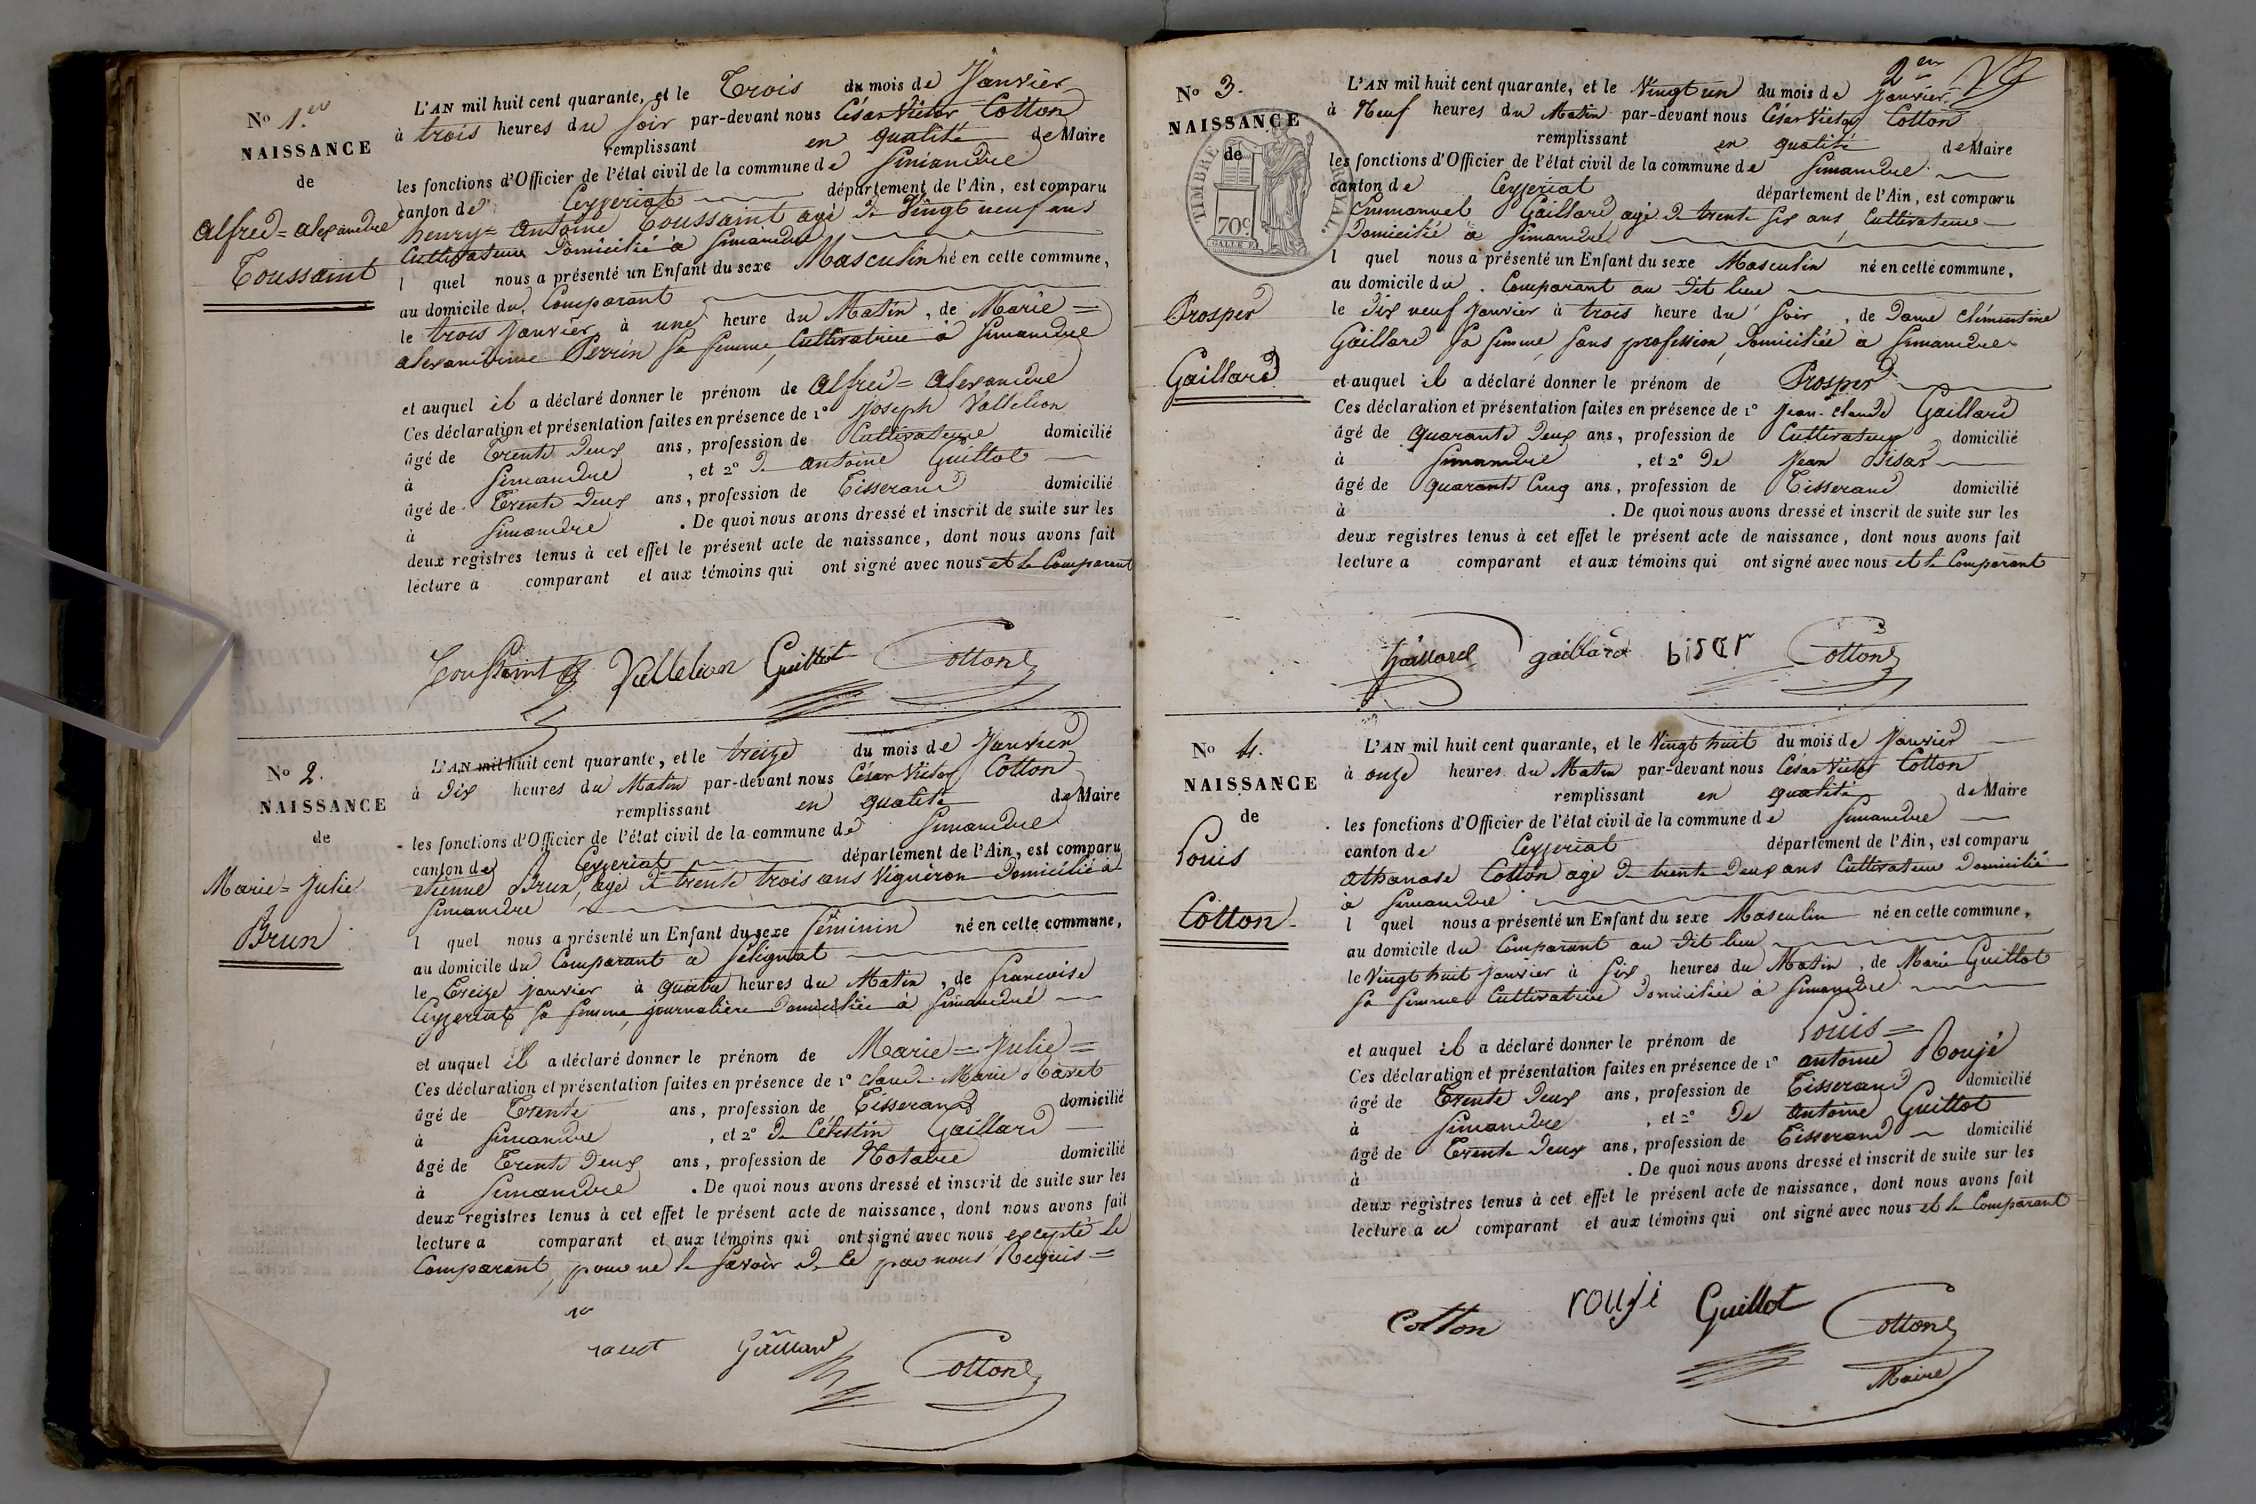 No 1.er
NAISSANCE
de
Alfred = Alexandre
Toussaint
L'AN mil huit cent quarante, et le Trois du mois de Janvier
à trois heures du soir par-devant nous César Victor Cotton
remplissant en qualité de Maire
les fonctions d'Officier de l'état civil de la commune de Simandre
canton de Ceyzeriat département de l'Ain, est comparu
henry = Antoine Toussaint agé de Vingt neuf ans
Cultivateur Domicilié à Simandre
l quel nous a présenté un Enfant du sexe Masculin né en cette commune,
au domicile du Comparant
le trois Janvier à une heure du Matin, de Marie =
alexandrine Perrin sa femme, Cultivatrice à Simandre
et auquel il a déclaré donner le prénom de Alfred = Alexandre
Ces déclaration et présentation faites en présence de 1° Joseph Vallelion
âgé de Trente Deux ans, profession de Cultivateur domicilié
à Simandre, et 2° De Antoine Guillot
âgé de Trente Deux ans, profession de Tisserand domicilié
à Simandre. De quoi nous avons dressé et inscrit de suite sur les
deux registres tenus à cet effet le présent acte de naissance, dont nous avons fait
lecture a comparant et aux témoins qui ont signé avec nous et le Comparant
Toussaint Vallelion Guillot Cotton
No 2.
NAISSANCE
de
Marie = Julie
Brun
L'AN mil huit cent quarante, et le treize du mois de Janvier
à Dix heures du Matin par-devant nous César Victor Cotton
remplissant en qualité de Maire
les fonctions d'Officier de l'état civil de la commune de Simandre
canton de Ceyzeriat département de l'Ain, est comparu
etienne Brun, agé de trente trois ans Vigneron Domicilié à
Simandre
l quel nous a présenté un Enfant du sexe féminin né en cette commune,
au domicile du Comparant a Sélignat
le Treize Janvier à quatre heures du Matin, de francoise
Ceyzeriat sa femme, journalière Domiciliée à Simandre
et auquel il a déclaré donner le prénom de Marie = Julie =
Ces déclaration et présentation faites en présence de 1° claude Marie Ravet
âgé de Trente ans, profession de Tisserand domicilié
à Simandre, et 2° De Célestin Gaillard
âgé de Trente Deux ans, profession de Notaire domicilié
à Simandre. De quoi nous avons dressé et inscrit de suite sur les
deux registres tenus à cet effet le présent acte de naissance, dont nous avons fait
lecture a comparant et aux témoins qui ont signé avec nous excepté le
Comparant, pour ne le savoir De ce par nous Requis =
ravet Gaillard Cotton
2en
No 3.
NAISSANCE
de
TIMBRE ROYAL.
70c.
Prosper
Gaillard
L'AN mil huit cent quarante, et le Vingt un du mois de Janvier
à Neuf heures du Matin par-devant nous César Victor Cotton
remplissant en qualité de Maire
les fonctions d'Officier de l'état civil de la commune de Simandre
canton de Ceyzeriat département de l'Ain, est comparu
Emmanuel Gaillard agé de trente six ans, Cultivateur
Domicilié à Simandre
l quel nous a présenté un Enfant du sexe Masculin né en cette commune,
au domicile du Comparant au Dit lieu
le Dix neuf Janvier à trois heure du Soir, de Dame clémentine
Gaillard sa femme, sans profession, Domiciliée à Simandre
et auquel il a déclaré donner le prénom de Prosper
Ces déclaration et présentation faites en présence de 1° Jean-claude Gaillard
âgé de quarante Deux ans, profession de Cultivateur domicilié
à Simandre, et 2° De Jean Bisar
âgé de quarante Cinq ans, profession de Tisserand domicilié
à . De quoi nous avons dressé et inscrit de suite sur les
deux registres tenus à cet effet le présent acte de naissance, dont nous avons fait
lecture a comparant et aux témoins qui ont signé avec nous et le Comparant
Gaillard gaillard bisar Cotton
No 4.
NAISSANCE
de
Louis
Cotton
L'AN mil huit cent quarante, et le Vingt huit du mois de Janvier
à onze heures du Matin par-devant nous César Victor Cotton
remplissant en qualité de Maire
les fonctions d'Officier de l'état civil de la commune de Simandre
canton de Ceyzeriat département de l'Ain, est comparu
Athanase Cotton agé de trente Deux ans Cultivateur Domicilié
à Simandre
l quel nous a présenté un Enfant du sexe Masculin né en cette commune,
au domicile du Comparant au Dit lieu
le Vingt huit Janvier à Six heures du Matin, de Marie Guillot
sa femme Cultivatrice Domiciliée à Simandre
et auquel il a déclaré donner le prénom de Louis =
Ces déclaration et présentation faites en présence de 1° antoine Roujé
âgé de Trente Deux ans, profession de Tisserand domicilié
à Simandre, et 2° De Antoine Guillot
âgé de Trente Deux ans, profession de Tisserand domicilié
à . De quoi nous avons dressé et inscrit de suite sur les
deux registres tenus à cet effet le présent acte de naissance, dont nous avons fait
lecture a comparant et aux témoins qui ont signé avec nous et le Comparant
Cotton rouji Guillot Cotton
Maire